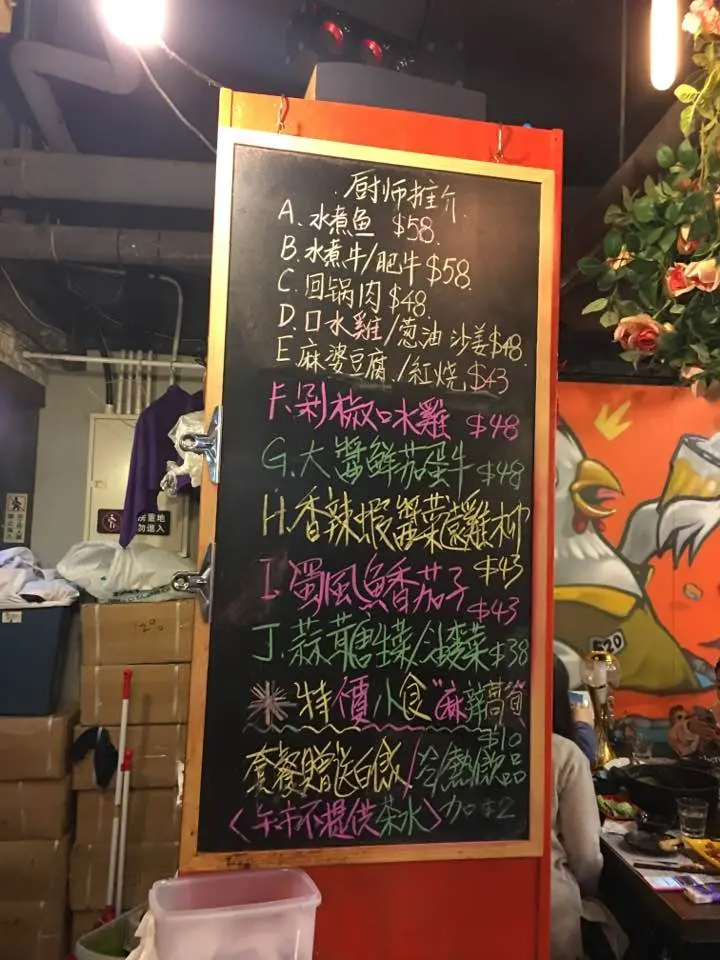 厨师推介
A、水煮鱼 $58
B.水煮牛/肥牛$58
C.回锅肉$48
D.口水雞/葱油沙姜$48
E麻婆豆腐./紅烧,$43
F.剁椒口水雞 $48
G.大醬鮮茄蛋牛$48
H.香辣蝦醬菜薳雞柳
$43
I.蜀風魚香茄子
$43
J.蒜蓉生菜/油麥菜$38
特價小食"麻辣萵筍
$10
套餐贈送白飯/冷熱飲品
<午市不提供茶水>加$2
請勿進入
520